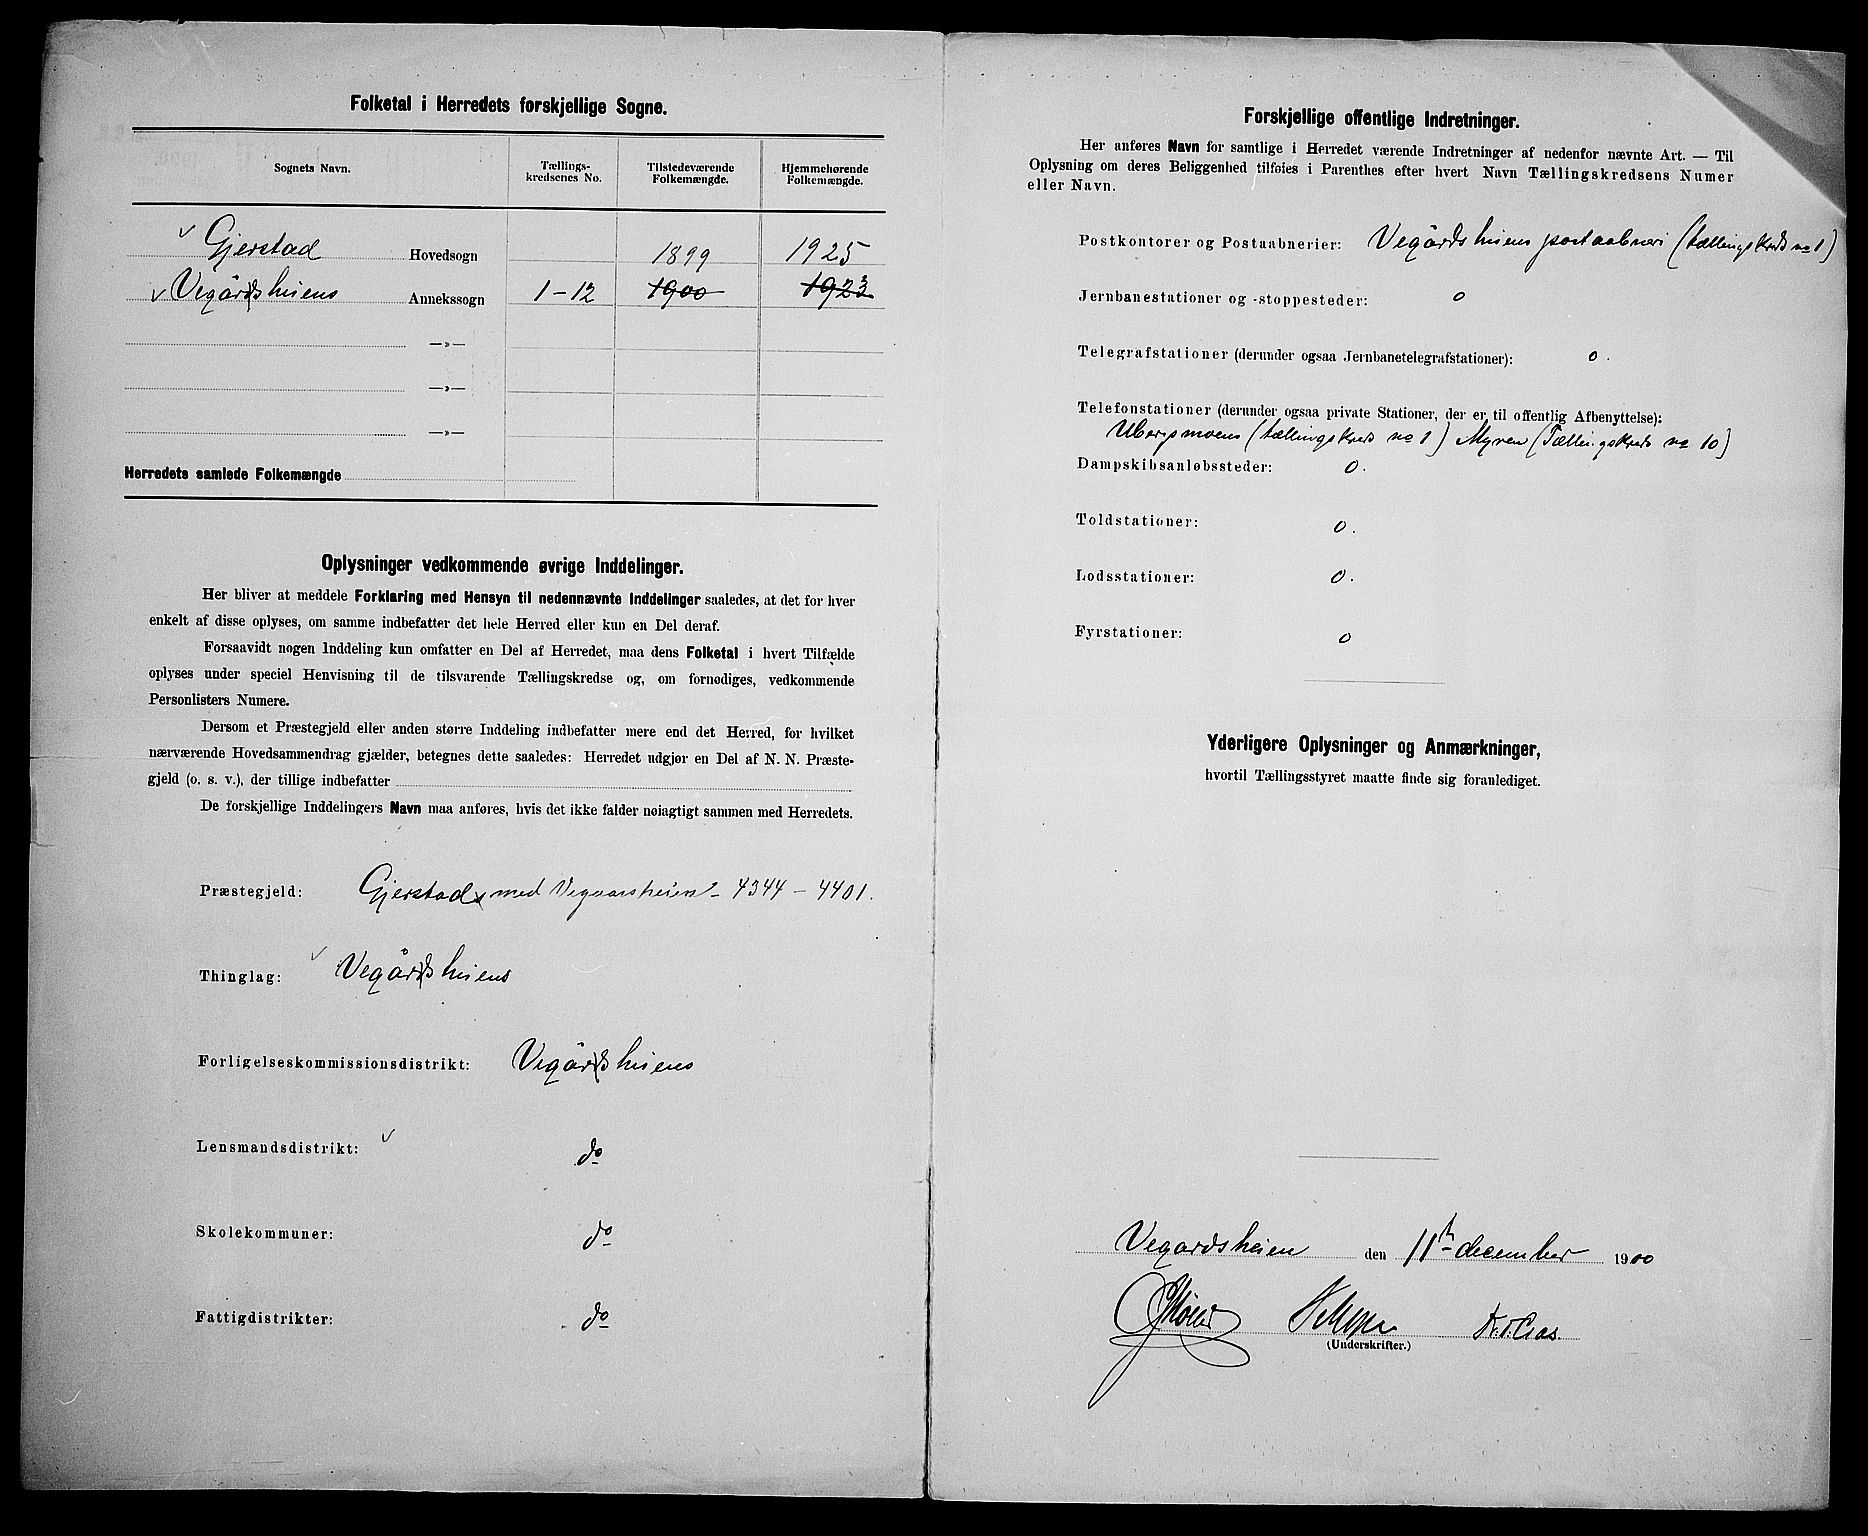 Folketal i Herredets forskjellige Sogne.
Sognets Navn. Tællings-kredsenes No. Tilstedeværende Folkemængde. Hjemmehørende Folkemængde.
Gjerstad Hovedsogn 1899 1925
Vegårdsheiens Annekssogn 1-12 1900 1923
—»—
—»—
—»—
Herredets samlede Folkemængde
Oplysninger vedkommende øvrige Inddelinger.
Her bliver at meddele Forklaring med Hensyn til nedennævnte Inddelinger saaledes, at det for hver
enkelt af disse oplyses, om samme indbefatter det hele Herred eller kun en Del deraf.
Forsaavidt nogen Inddeling kun omfatter en Del af Herredet, maa dens Folketal i hvert Tilfælde
oplyses under speciel Henvisning til de tilsvarende Tællingskredse og, om fornødiges, vedkommende
Personlisters Numere.
Dersom et Præstegjeld eller anden større Inddeling indbefatter mere end det Herred, for hvilket
nærværende Hovedsammendrag gjælder, betegnes dette saaledes: Herredet udgjør en Del af N. N. Præste-
gjeld (o. s. v.), der tillige indbefatter
De forskjellige Inddelingers Navn maa anføres, hvis det ikke falder nøiagtigt sammen med Herredets.
Præstegjeld: Gjerstad med Vegaarsheien - 4344 - 4401.
Thinglag: Vegårdsheiens
Forligelseskommissionsdistrikt: Vegårdsheiens
Lensmandsdistrikt: do
Skolekommuner: do
Fattigdistrikter: do
Forskjellige offentlige Indretninger.
Her anføres Navn for samtlige i Herredet værende Indretninger af nedenfor nævnte Art. — Til
Oplysning om deres Beliggenhed tilføies i Parenthes efter hvert Navn Tællingskredsens Numer
eller Navn.
Postkontorer og Postaabnerier: Vegårdsheiens postaabneri (tællingskreds no 1)
Jernbanestationer og -stoppesteder: 0
Telegrafstationer (derunder ogsaa Jernbanetelegrafstationer): 0.
Telefonstationer (derunder ogsaa private Stationer, der er til offentlig Afbenyttelse):
Ubergsmoens (tællingskreds no 1) Myren (Tællingskreds no 10)
Dampskibsanløbssteder: 0.
Toldstationer: 0.
Lodsstationer: 0.
Fyrstationer: 0
Yderligere Oplysninger og Anmærkninger,
hvortil Tællingsstyret maatte finde sig foranlediget.
Vegardsheien den 11te december 1900
(Underskrifter.)